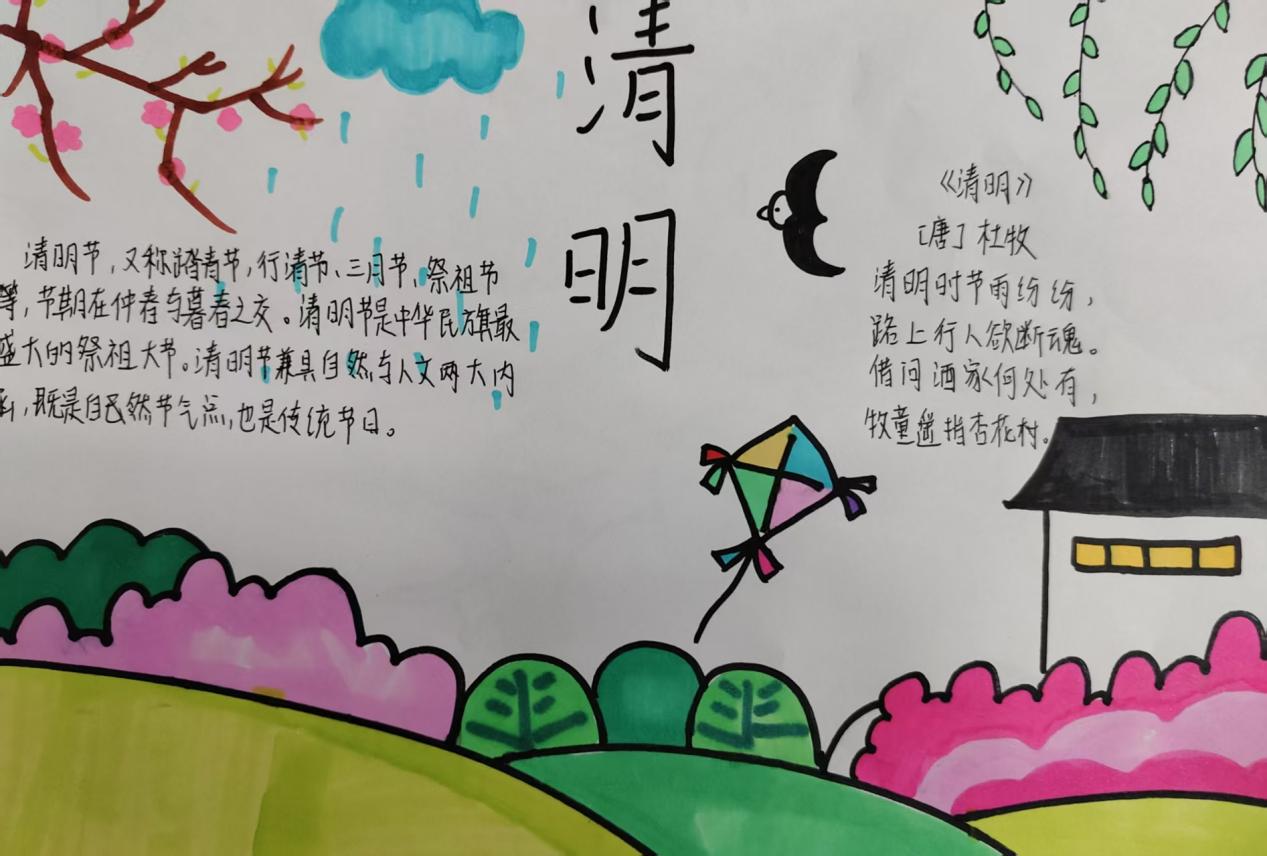 清明
清明节,又称踏青节,行清节、三月节、祭祖节
等,节期在仲春与暮春之交。清明节是中华民族最
盛大的祭祖大节。清明节兼具自然与人文两大内
,既是自然节气点,也是传统节日。
《清明》
[唐]杜牧
清明时节雨纷纷,
路上行人欲断魂。
借问酒家何处有,
牧童遥指杏花村。